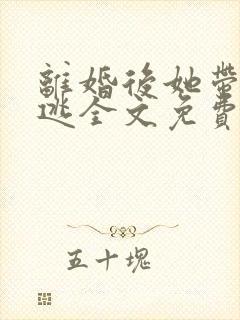 離婚後她帶
逃全文免費
五十塊